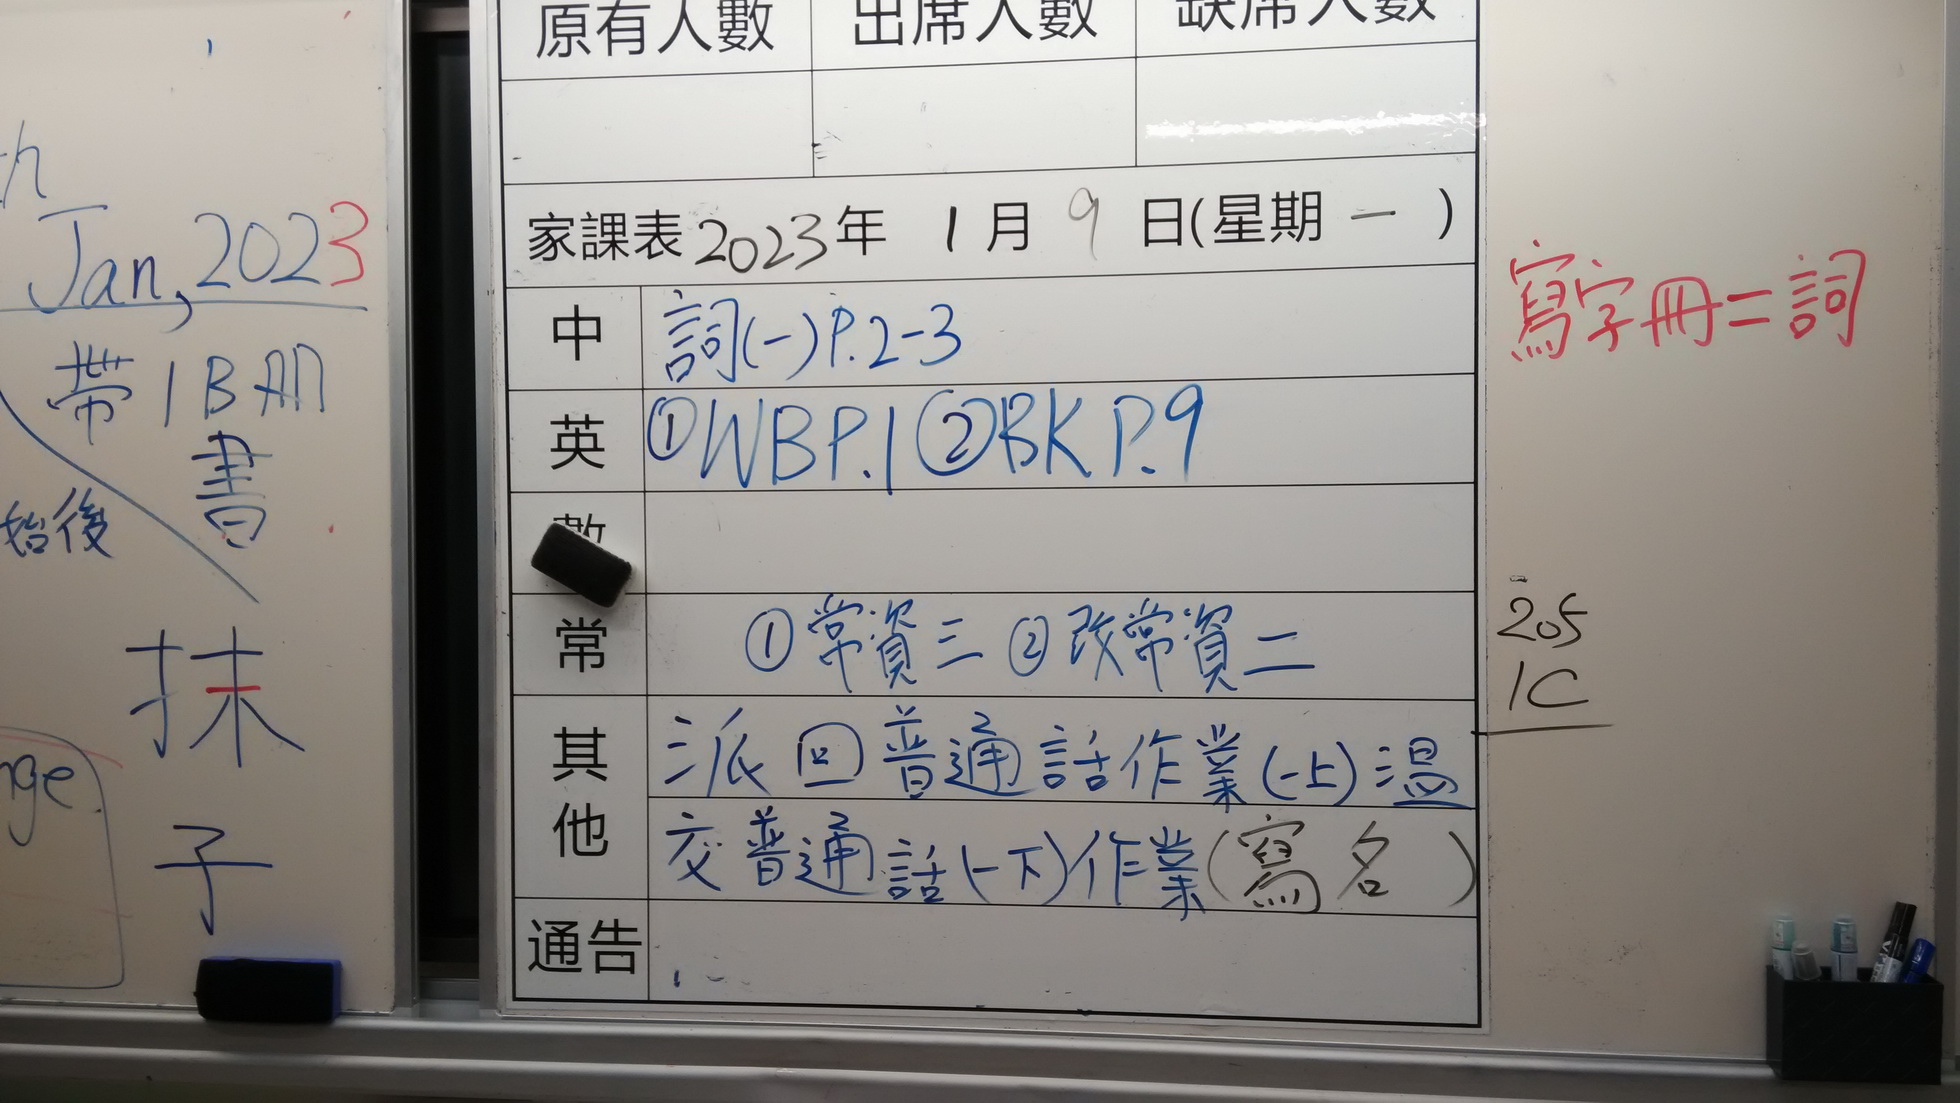 th
Jan, 2023
帶1B冊
書
始後
抹
子
nge
原有人數 出席人數 缺席人數
家課表2023年 1月9日(星期一)
中 詞(一)P.2-3
英 ①WBP.1②BKP.9
數
常 ①常資三 ②改常資二
其他 派回普通話作業(一上)溫
交普通話(一下)作業(寫名)
通告
寫字冊二詞
205
1C